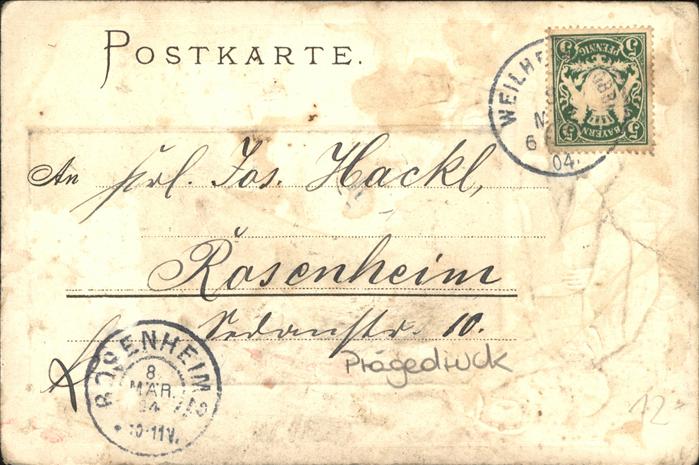 POSTKARTE.
5 PFENNIG 5
5 BAYERN 5
WEILHE
6
04.
An Frl. Jos. Hackl,
Rosenheim
Sedanstr. 10.
ROSENHEIM
8
MÄR.
04
10-11V.
Prägedruck
12